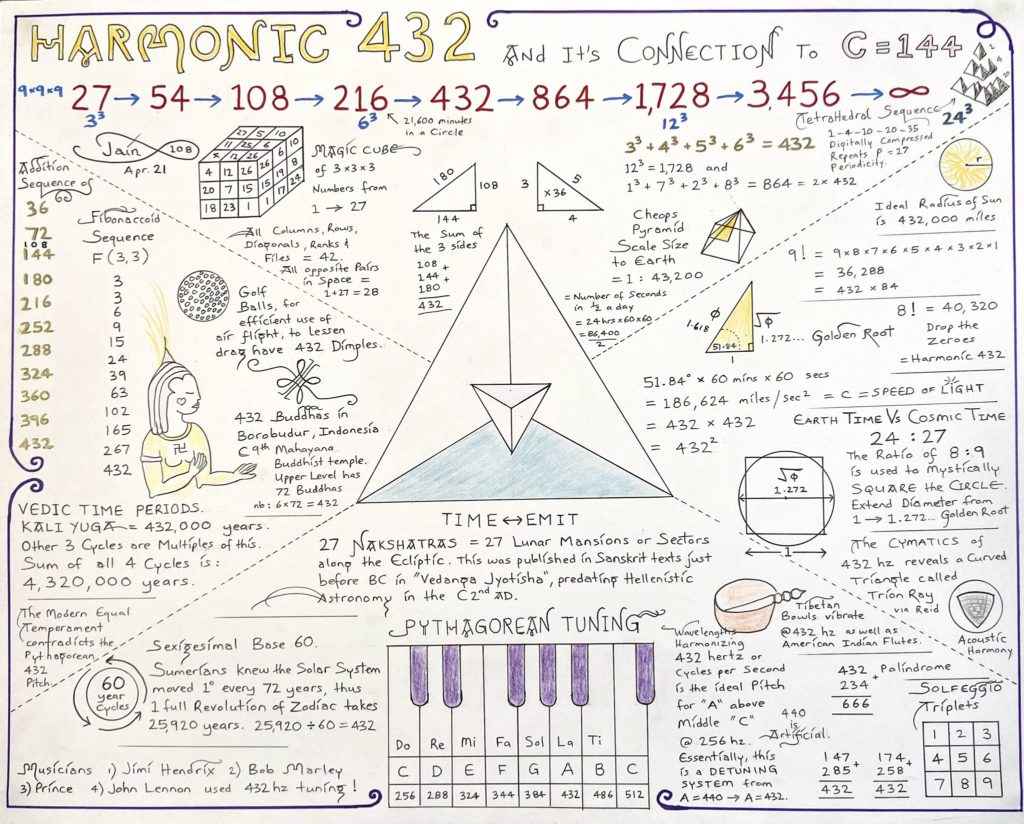 HARMONIC 432 AND IT'S CONNECTION TO C=144
9x9x9 27 → 54 → 108 → 216 → 432 → 864 → 1,728 → 3,456 → ∞
3³
6³
21,600 minutes
in a Circle
12³
24³
TETRAHEDRAL SEQUENCE
1-4-10-20-35
Digitally Compressed
Repeats P=27
Periodicity.
2
4
20
Jain 108
Apr. 21
27 5 10
11 25 6
4 12 26
4 12 26
20 7 15
18 23 1
MAGIC CUBE
of 3x3x3
Numbers from
1 → 27
All Columns, Rows,
Diagonals, Ranks &
Files = 42.
All opposite Pairs
in Space =
1+27=28
180
108
144
The Sum of
the 3 sides
108 +
144 +
180
432
3
5
x36
4
3³+4³+5³+6³ = 432
12³ = 1,728 and
1³+7³+2³+8³ = 864 = 2x432
r
Ideal Radius of Sun
is 432,000 miles
Cheops
Pyramid
Scale Size
to Earth
= 1 : 43,200
= Number of Seconds
in ½ a day
= 24hrs x60x60
= 86,400
2
9! = 9x8x7x6x5x4x3x2x1
= 36,288
= 432 x 84
8! = 40,320
Drop the
Zeroes
= Harmonic 432
Φ
1.618
√Φ
1.272...
51.84°
1
Golden Root
51.84° x 60 mins x 60 secs
= 186,624 miles/sec² = C = SPEED OF LIGHT
= 432 x 432
= 432²
Addition
Sequence of
36
72
108
144
180
216
252
288
324
360
396
432
Fibonaccoid
Sequence
F(3,3)
3
3
6
9
15
24
39
63
102
165
267
432
Golf
Balls, for
efficient use of
air flight, to Lessen
drag have 432 Dimples.
432 Buddhas in
Borobudur, Indonesia
C 9th Mahayana
Buddhist temple.
Upper Level has
72 Buddhas
nb: 6x72=432
EARTH TIME VS COSMIC TIME
24 : 27
The Ratio of 8:9
is used to Mystically
SQUARE the CIRCLE.
Extend Diameter from
1 → 1.272... Golden Root
√Φ
1.272
1
VEDIC TIME PERIODS.
KALI YUGA = 432,000 years.
Other 3 Cycles are Multiples of this.
Sum of all 4 Cycles is:
4,320,000 years.
TIME ↔ EMIT
27 NAKSHATRAS = 27 Lunar Mansions or Sectors
along the Ecliptic. This was published in Sanskrit texts just
before BC in "Vedanga Jyotisha", predating Hellenistic
Astronomy in the C 2nd AD.
The CYMATICS of
432 hz reveals a Curved
Triangle called
Trion Ray
via Reid
Acoustic
Harmony
Tibetan
Bowls vibrate
@432 hz as well as
American Indian Flutes.
The Modern Equal
Temperament
contradicts the
Pythagorean
432
Pitch
60
year
Cycles
Sexigesimal Base 60.
Sumerians knew the Solar System
moved 1° every 72 years, thus
1 full Revolution of Zodiac takes
25,920 years. 25,920÷60=432
Musicians 1) Jimi Hendrix 2) Bob Marley
3) Prince 4) John Lennon used 432hz tuning!
PYTHAGOREAN TUNING
Do Re Mi Fa Sol La Ti
C D E F G A B C
256 288 324 344 384 432 486 512
Wavelengths
Harmonizing
432 hertz or
Cycles per Second
is the ideal Pitch
for "A" above
Middle "C"
@ 256 hz.
Essentially, this
is a DETUNING
SYSTEM from
A=440 → A=432.
440
is
Artificial.
432 + Palindrome
234
666
147 +
285
432
174 +
258
432
SOLFEGGIO
Triplets
1 2 3
4 5 6
7 8 9